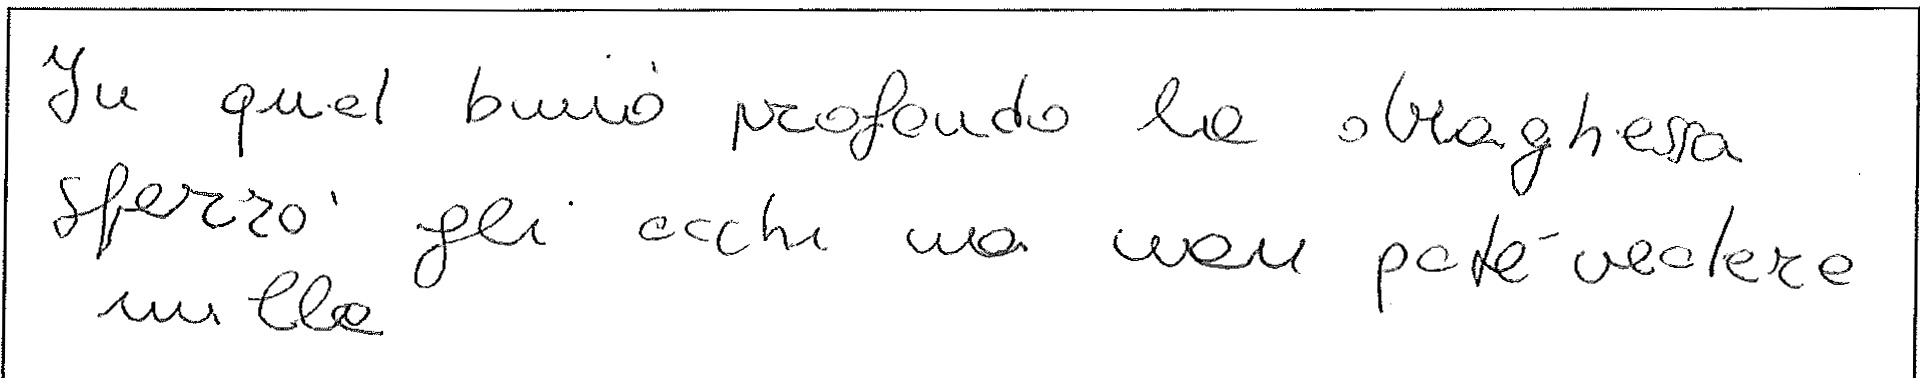 In quel buio profondo la draghessa
sferzò gli occhi ma non poté vedere
nulla